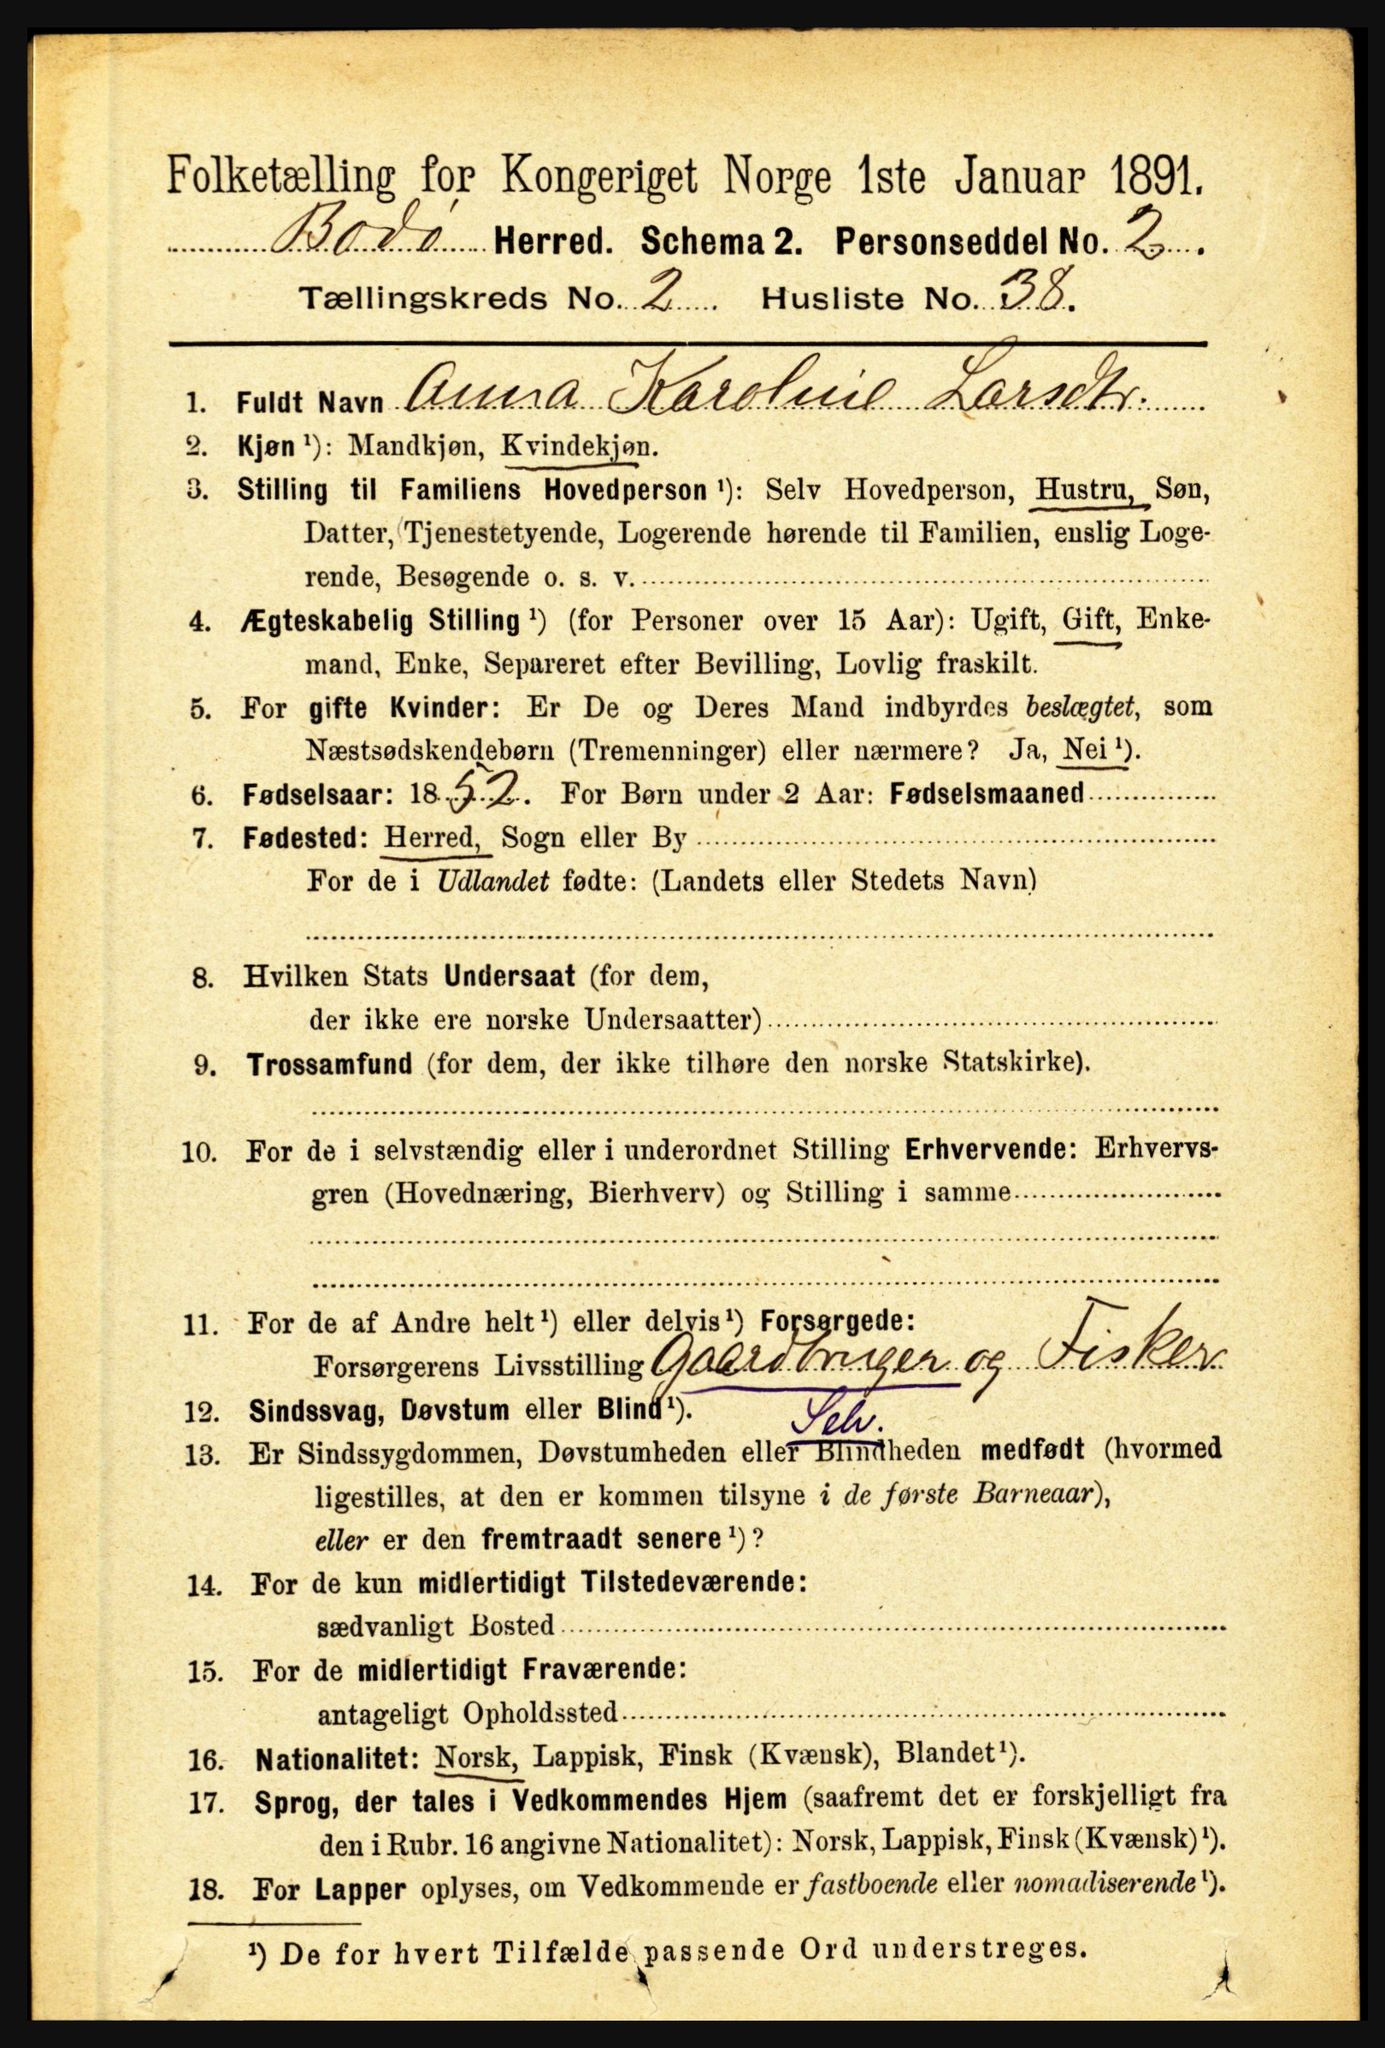 Folketælling for Kongeriget Norge 1ste Januar 1891.
Bodø Herred. Schema 2. Personseddel No. 2.
Tællingskreds No. 2 Husliste No. 38.
1. Fuldt Navn Anna Karoline Larsdtr.
2. Kjøn ¹): Mandkjøn, Kvindekjøn.
3. Stilling til Familiens Hovedperson ¹): Selv Hovedperson, Hustru, Søn,
Datter, Tjenestetyende, Logerende hørende til Familien, enslig Loge-
rende, Besøgende o. s. v.
4. Ægteskabelig Stilling ¹) (for Personer over 15 Aar): Ugift, Gift, Enke-
mand, Enke, Separeret efter Bevilling, Lovlig fraskilt.
5. For gifte Kvinder: Er De og Deres Mand indbyrdes beslægtet, som
Næstsødskendebørn (Tremenninger) eller nærmere? Ja, Nei ¹).
6. Fødselsaar: 1852. For Børn under 2 Aar: Fødselsmaaned
7. Fødested: Herred, Sogn eller By
For de i Udlandet fødte: (Landets eller Stedets Navn)
8. Hvilken Stats Undersaat (for dem,
der ikke ere norske Undersaatter)
9. Trossamfund (for dem, der ikke tilhøre den norske Statskirke).
10. For de i selvstændig eller i underordnet Stilling Erhvervende: Erhvervs-
gren (Hovednæring, Bierhverv) og Stilling i samme
11. For de af Andre helt ¹) eller delvis ¹) Forsørgede:
Forsørgerens Livsstilling Gaardbruger og Fisker
12. Sindssvag, Døvstum eller Blind ¹). Selv.
13. Er Sindssygdommen, Døvstumheden eller Blindheden medfødt (hvormed
ligestilles, at den er kommen tilsyne i de første Barneaar),
eller er den fremtraadt senere ¹)?
14. For de kun midlertidigt Tilstedeværende:
sædvanligt Bosted
15. For de midlertidigt Fraværende:
antageligt Opholdssted
16. Nationalitet: Norsk, Lappisk, Finsk (Kvænsk), Blandet ¹).
17. Sprog, der tales i Vedkommendes Hjem (saafremt det er forskjelligt fra
den i Rubr. 16 angivne Nationalitet): Norsk, Lappisk, Finsk (Kvænsk) ¹).
18. For Lapper oplyses, om Vedkommende er fastboende eller nomadiserende ¹).
¹) De for hvert Tilfælde passende Ord understreges.